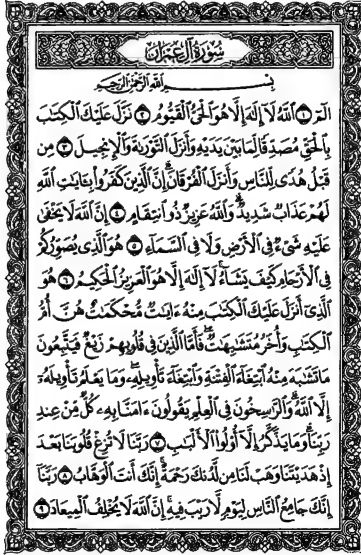 سُورَةُ آلِ عِمْرَانَ
بِسْمِ اللَّهِ الرَّحْمَٰنِ الرَّحِيمِ
الٓمٓ ١ ٱللَّهُ لَآ إِلَٰهَ إِلَّا هُوَ ٱلْحَىُّ ٱلْقَيُّومُ ٢ نَزَّلَ عَلَيْكَ ٱلْكِتَٰبَ
بِٱلْحَقِّ مُصَدِّقًا لِّمَا بَيْنَ يَدَيْهِ وَأَنزَلَ ٱلتَّوْرَىٰةَ وَٱلْإِنجِيلَ ٣ مِن
قَبْلُ هُدًى لِّلنَّاسِ وَأَنزَلَ ٱلْفُرْقَانَ ۗ إِنَّ ٱلَّذِينَ كَفَرُوا۟ بِـَٔايَٰتِ ٱللَّهِ
لَهُمْ عَذَابٌ شَدِيدٌ ۗ وَٱللَّهُ عَزِيزٌ ذُو ٱنتِقَامٍ ٤ إِنَّ ٱللَّهَ لَا يَخْفَىٰ
عَلَيْهِ شَىْءٌ فِى ٱلْأَرْضِ وَلَا فِى ٱلسَّمَآءِ ٥ هُوَ ٱلَّذِى يُصَوِّرُكُمْ
فِى ٱلْأَرْحَامِ كَيْفَ يَشَآءُ ۚ لَآ إِلَٰهَ إِلَّا هُوَ ٱلْعَزِيزُ ٱلْحَكِيمُ ٦ هُوَ
ٱلَّذِىٓ أَنزَلَ عَلَيْكَ ٱلْكِتَٰبَ مِنْهُ ءَايَٰتٌ مُّحْكَمَٰتٌ هُنَّ أُمُّ
ٱلْكِتَٰبِ وَأُخَرُ مُتَشَٰبِهَٰتٌ ۖ فَأَمَّا ٱلَّذِينَ فِى قُلُوبِهِمْ زَيْغٌ فَيَتَّبِعُونَ
مَا تَشَٰبَهَ مِنْهُ ٱبْتِغَآءَ ٱلْفِتْنَةِ وَٱبْتِغَآءَ تَأْوِيلِهِۦ ۗ وَمَا يَعْلَمُ تَأْوِيلَهُۥٓ
إِلَّا ٱللَّهُ ۗ وَٱلرَّٰسِخُونَ فِى ٱلْعِلْمِ يَقُولُونَ ءَامَنَّا بِهِۦ كُلٌّ مِّنْ عِندِ
رَبِّنَا ۗ وَمَا يَذَّكَّرُ إِلَّآ أُو۟لُوا۟ ٱلْأَلْبَٰبِ ٧ رَبَّنَا لَا تُزِغْ قُلُوبَنَا بَعْدَ
إِذْ هَدَيْتَنَا وَهَبْ لَنَا مِن لَّدُنكَ رَحْمَةً ۚ إِنَّكَ أَنتَ ٱلْوَهَّابُ ٨ رَبَّنَآ
إِنَّكَ جَامِعُ ٱلنَّاسِ لِيَوْمٍ لَّا رَيْبَ فِيهِ ۚ إِنَّ ٱللَّهَ لَا يُخْلِفُ ٱلْمِيعَادَ ٩